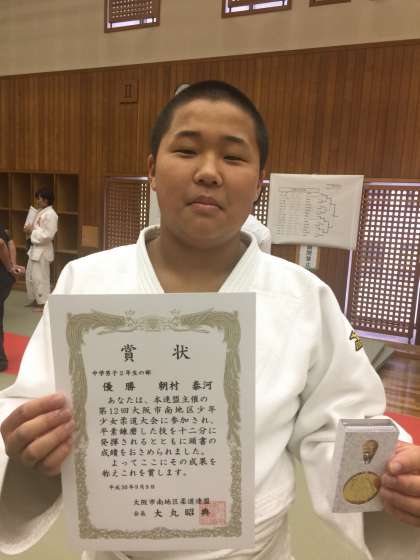 賞状
中学男子2年生の部
優勝 朝村 泰河
あなたは、本連盟主催の
第12回大阪市南地区少年
少女柔道大会に参加され、
平素錬磨した技を十二分に
発揮されるとともに頭書の
成績をおさめられました。
よってここにその成果を
称えこれを賞します。
平成30年9月9日
大阪市南地区柔道連盟
会長 大丸昭典